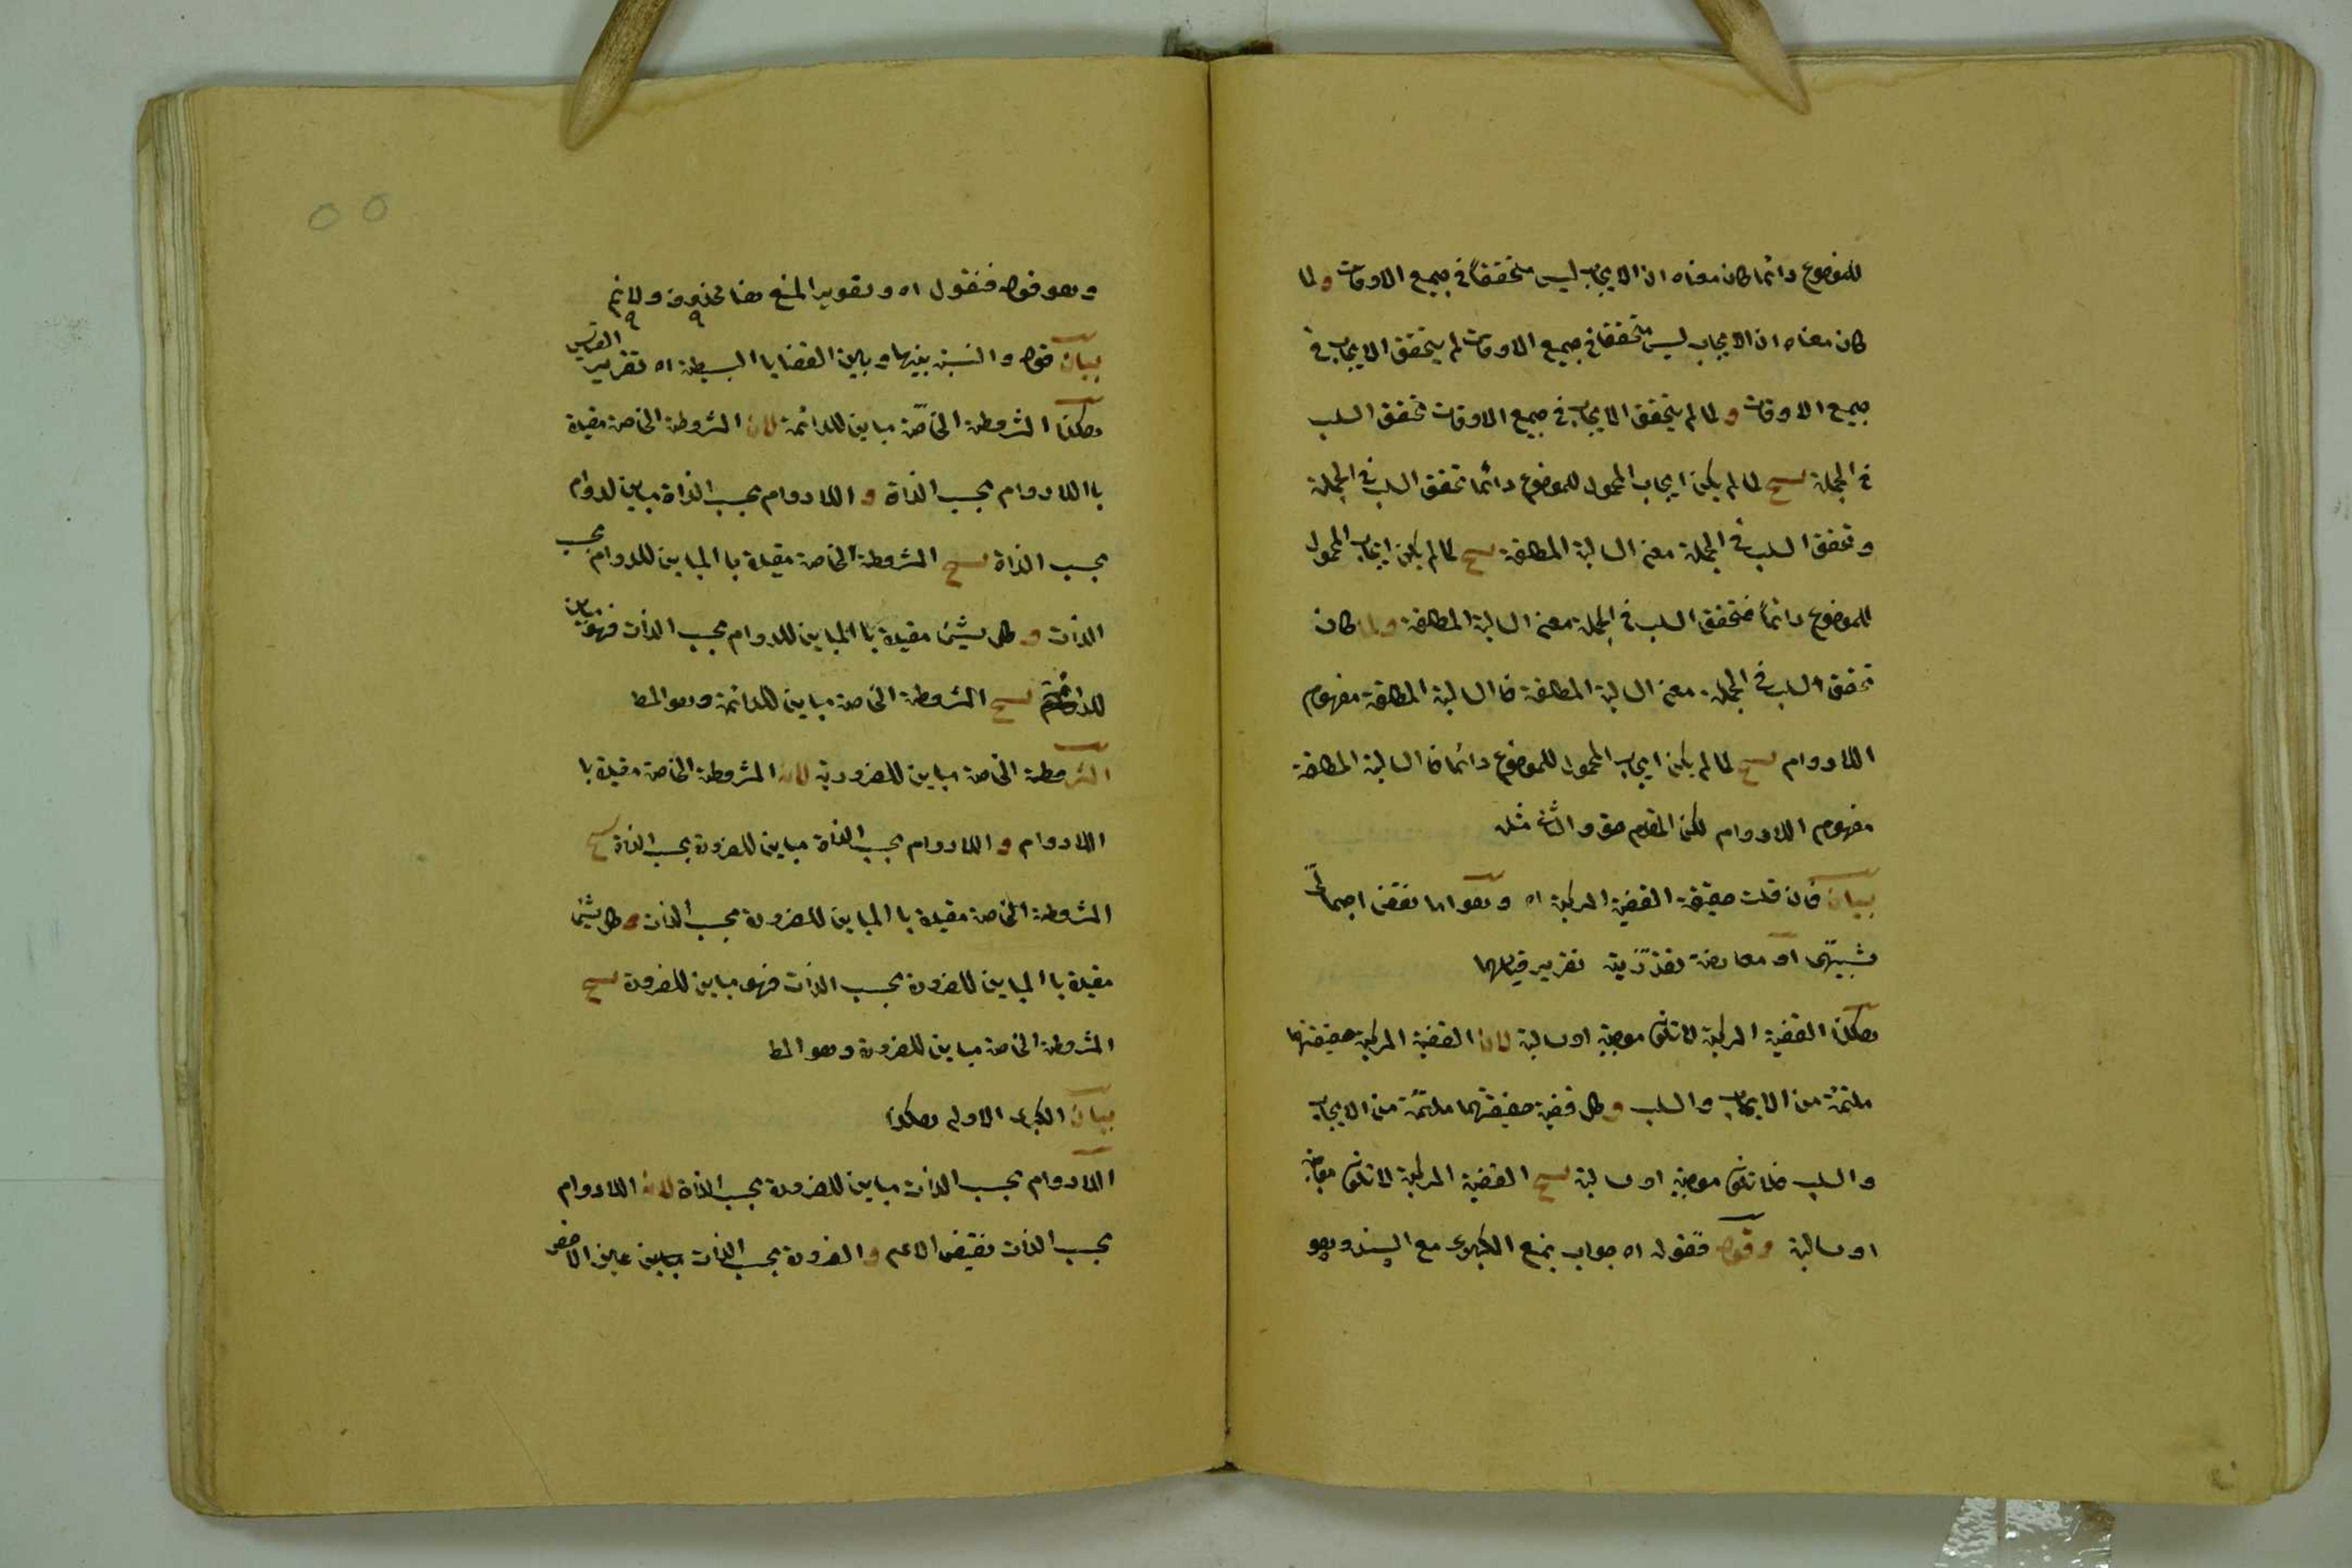 للموضوع دائما كان معناه ان الايجاب ليس متحققا في جميع الاوقات ولما
كان معناه ان الايجاب ليس متحققا في جميع الاوقات لم يتحقق الايجاب في
جميع الاوقات ولما لم يتحقق الايجاب في جميع الاوقات تحقق السلب
في الجملة ينتج لما لم يكن ايجاب المحمول للموضوع دائما تحقق السلب في الجملة
وتحقق السلب في الجملة معنى السالبة المطلقة ينتج لما لم يكن ايجاب المحمول
للموضوع دائماً فتحقق السلب في الجملة معنى السالبة المطلقة ولما كان
تحقق السلب في الجملة معنى السالبة المطلقة فالسالبة المطلقة مفهوم
اللادوام ينتج لما لم يكن ايجاب المحمول للموضوع دائما فالسالبة المطلقة
مفهوم اللادوام لكن المقدم حق والتالي مثله
بيان فان قلت حقيقة القضية المركبة اه وهو اما نقض اجمالي
شبيهي او معارضة تقديرية تقرير قياسهما
هكذا القضية المركبة لا تكون موجبة او سالبة لان القضية المركبة حقيقتها
ملتئمة من الايجاب والسلب وكل قضية حقيقتهما ملتئمة من الايجاب
والسلب فلا تكون موجبة او سالبة ينتج القضية المركبة لا تكون موجبة
او سالبة وقوله فنقول اه جواب بمنع الكبرى مع السند وهو
55
وهو قوله فنقول اه وتقوير المنع هنا محذوف ولانم
بيان قوله والنسبة بينها وبين القضايا البسيطة اه تقرير القياس
هكذا المشروطة الخاصّة مباين للدائمة لان المشروطة الخاصة مقيدة
باللادوام بحسب الذاة و اللادوام بحسب الذاة مباين لدوام
بحسب الذاة ينتج المشروطة الخاصة مقيدة با المباين للدوام بحسب
الذات وكل شيئ مقيدة با المباين للدوام بحسب الذات فهو مباين
للدائمة ينتج المشروطة الخاصة مباين للدائمة وهو المط
المشروطة الخاصة مباين للضرورية لان المشروطة الخاصة مقيدة با
اللادوام و اللادوام بحسب الذاة مباين للضرورة بحسب الذاة ينتج
المشروطة الخاصة مقيدة با المباين للضرورة بحسب الذات وكل شيئ
مقيدة با المباين للضرورة بحسب الذات فهو مباين للضرورة ينتج
المشروطة الخاصة مباين للضرورة وهو المط
بيان الكبرى الاولى هكذا
اللادوام بحسب الذات مباين للضرورة بحسب الذاة لان اللادوام
بحسب الذات نقيض الاعم والضرورة بحسب الذات عين الاخص